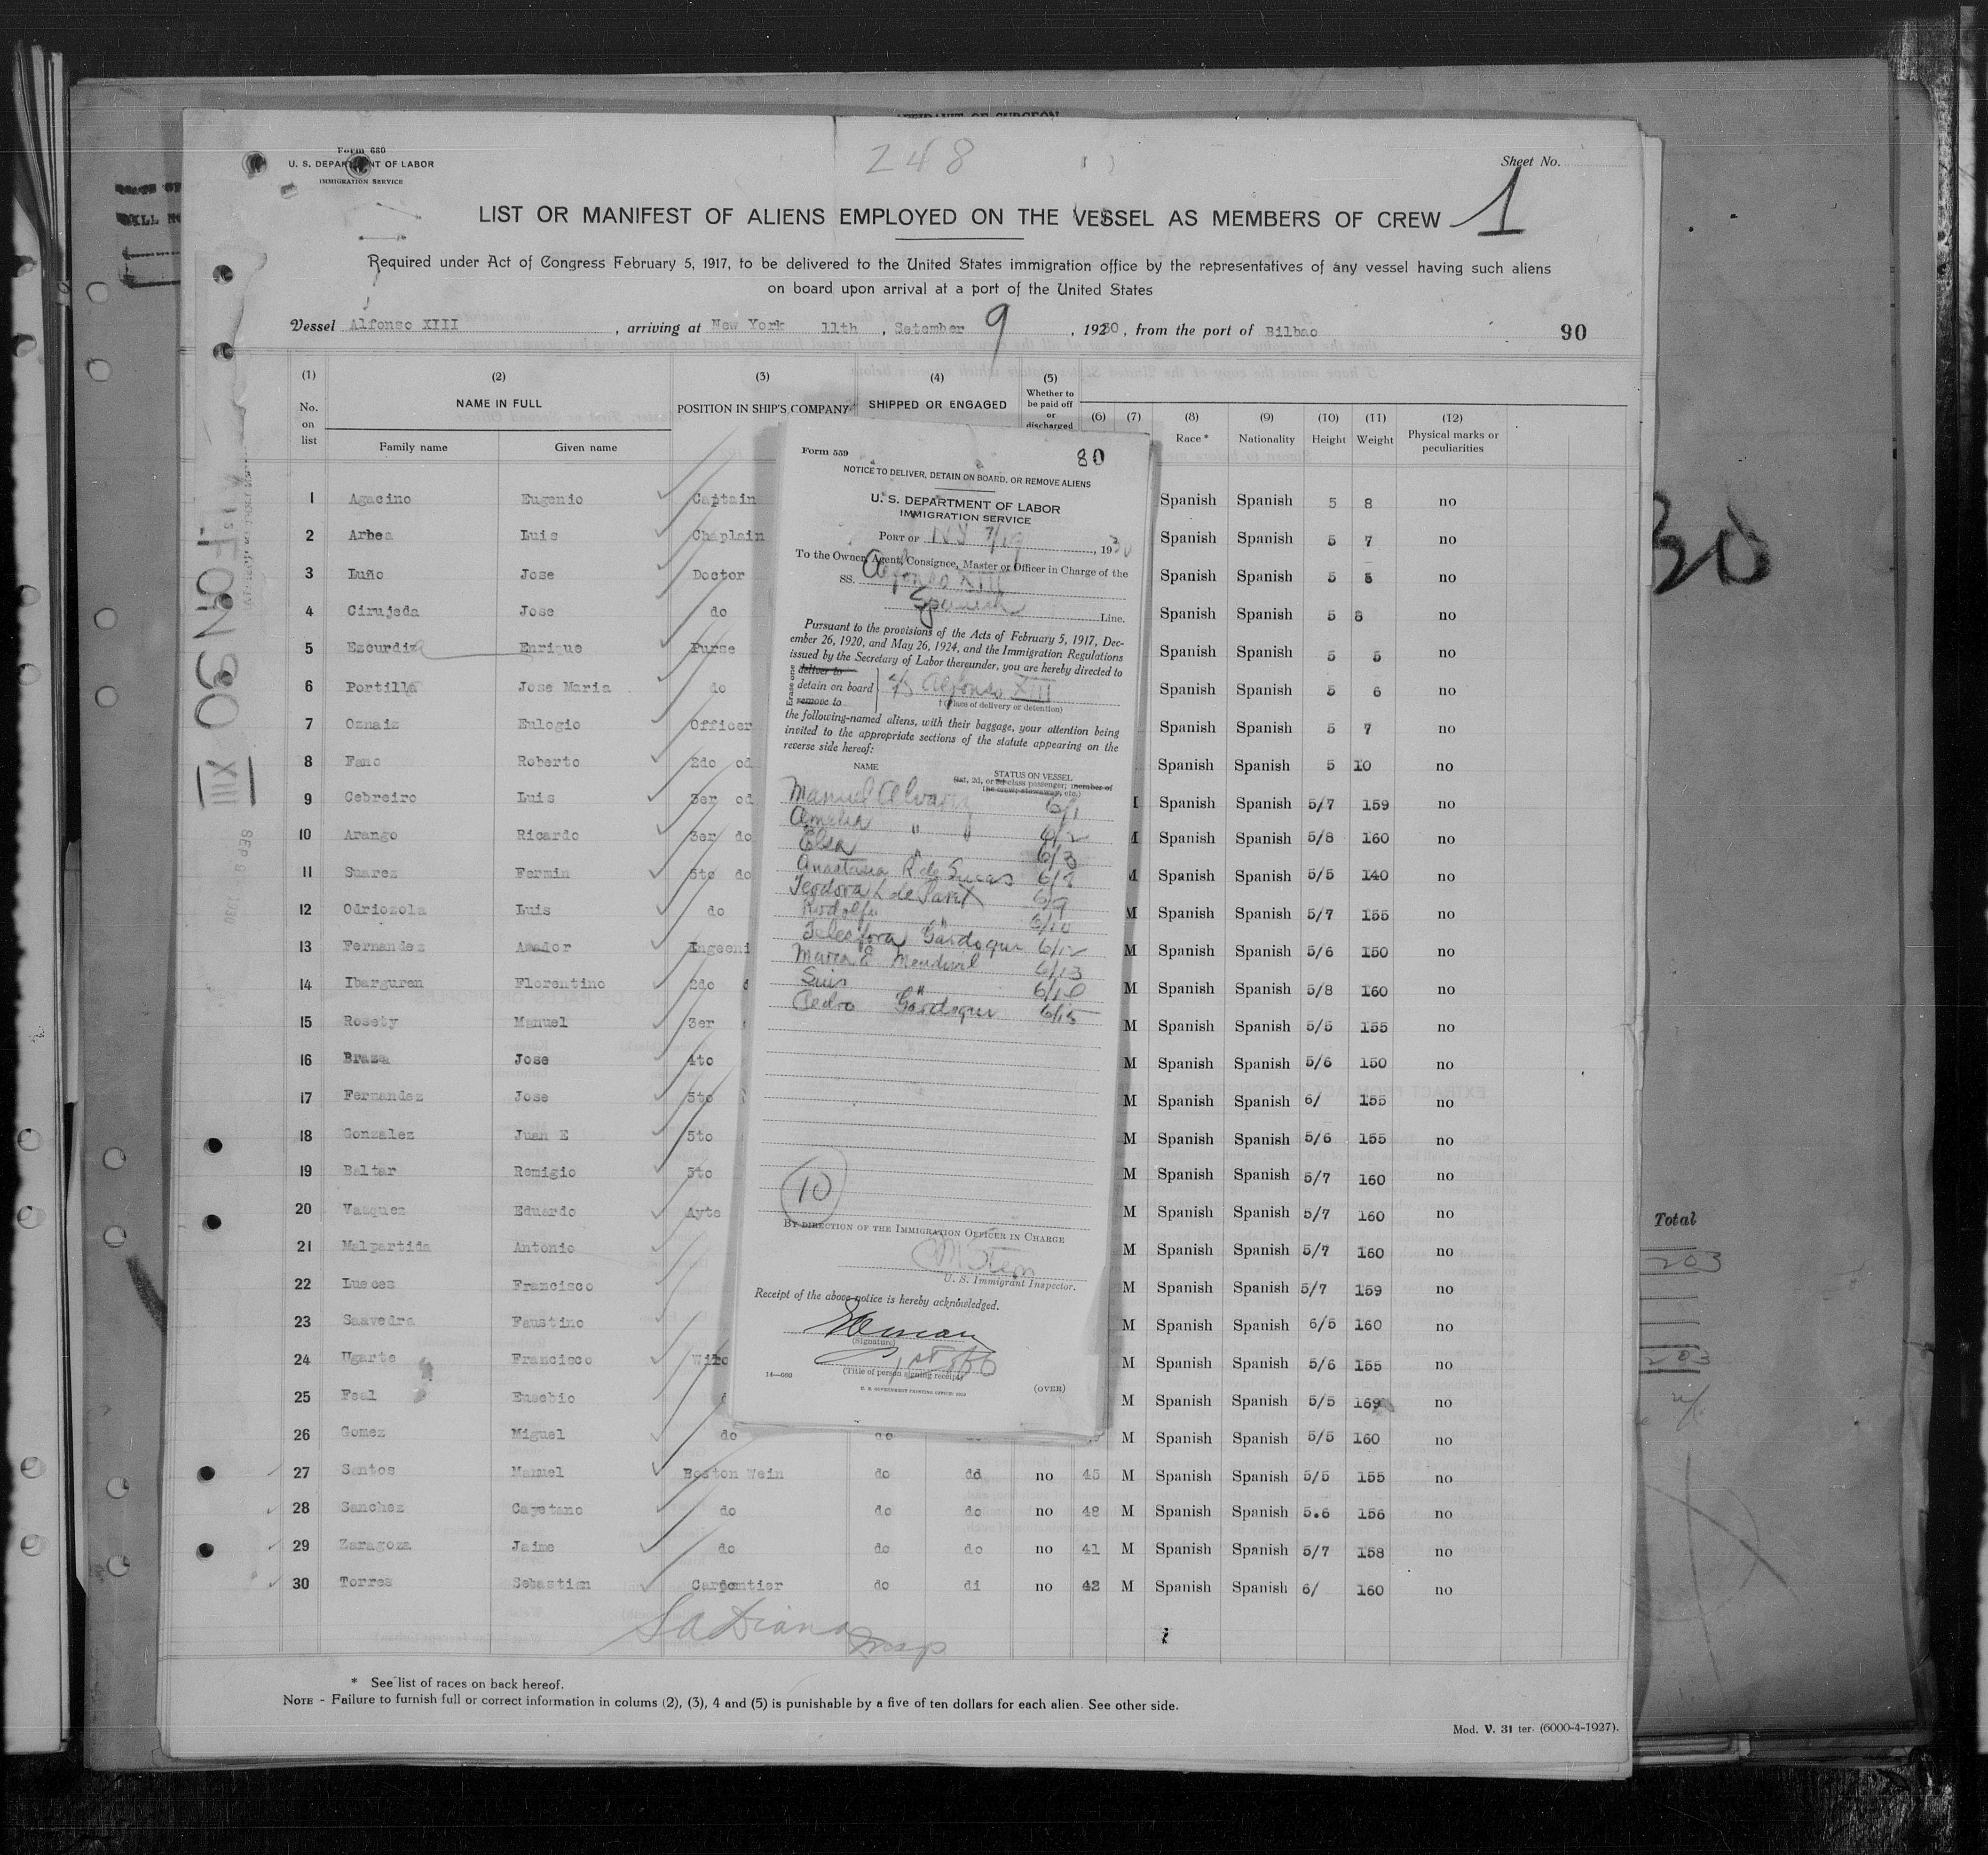 AFFIDAVIT OF SURGEON
Form 680
U. S. DEPARTMENT OF LABOR
IMMIGRATION SERVICE
248
Sheet No.
1
LIST OR MANIFEST OF ALIENS EMPLOYED ON THE VESSEL AS MEMBERS OF CREW
Required under Act of Congress February 5, 1917, to be delivered to the United States immigration office by the representatives of any vessel having such aliens
on board upon arrival at a port of the United States
Vessel Alfonso XIII, arriving at New York 11th, Setember 9, 1930, from the port of Bilbao 90
(1) (2) (3) (4) (5)
No. on list NAME IN FULL POSITION IN SHIP'S COMPANY SHIPPED OR ENGAGED Whether to be paid off or discharged (6) (7) (8) Race* (9) Nationality (10) Height (11) Weight (12) Physical marks or peculiarities
Family name Given name
1 Agacino Eugenio Captain Spanish Spanish 5 8 no
2 Arbea Luis Chaplain Spanish Spanish 5 7 no
3 Luño Jose Doctor Spanish Spanish 5 5 no
4 Cirujeda Jose do Spanish Spanish 5 8 no
5 Ezcurdia Enrique Purse Spanish Spanish 5 5 no
6 Portilla Jose Maria do Spanish Spanish 5 6 no
7 Oznaiz Eulogio Officer Spanish Spanish 5 7 no
8 Fano Roberto 2do od Spanish Spanish 5 10 no
9 Cebreiro Luis 3er od Spanish Spanish 5/7 159 no
10 Arango Ricardo 3er do Spanish Spanish 5/8 160 no
11 Suarez Fermin 5to do Spanish Spanish 5/5 140 no
12 Odriozola Luis do M Spanish Spanish 5/7 155 no
13 Fernandez Amador Ingeeni M Spanish Spanish 5/6 150 no
14 Ibarguren Florentino 2do M Spanish Spanish 5/8 160 no
15 Rosety Manuel 3er M Spanish Spanish 5/5 155 no
16 Braza Jose 4to M Spanish Spanish 5/6 150 no
17 Fernandez Jose 5to M Spanish Spanish 6/ 155 no
18 Gonzalez Juan E 5to M Spanish Spanish 5/6 155 no
19 Baltar Remigio 5to M Spanish Spanish 5/7 160 no
20 Vazquez Eduardo Ayte M Spanish Spanish 5/7 160 no
21 Malpartida Antonio M Spanish Spanish 5/7 160 no
22 Lueces Francisco M Spanish Spanish 5/7 159 no
23 Saavedra Faustino M Spanish Spanish 6/5 160 no
24 Ugarte Francisco M Spanish Spanish 5/6 155 no
25 Feal Eusebio M Spanish Spanish 5/5 169 no
26 Gomez Miguel do do M Spanish Spanish 5/5 160 no
27 Santos Manuel Boston Wein do dd no 45 M Spanish Spanish 5/5 155 no
28 Sanchez Cayetano do do do no 48 M Spanish Spanish 5.6 156 no
29 Zaragoza Jaime do do do no 41 M Spanish Spanish 5/7 158 no
30 Torres Sebastian do di no 42 M Spanish Spanish 6/ 160 no
* See list of races on back hereof.
NOTE - Failure to furnish full or correct information in colums (2), (3), 4 and (5) is punishable by a five of ten dollars for each alien. See other side.
Mod. V. 31 ter. (6000-4-1927).
Form 559
80
NOTICE TO DELIVER, DETAIN ON BOARD, OR REMOVE ALIENS
U. S. DEPARTMENT OF LABOR
IMMIGRATION SERVICE
PORT OF NY 9/19, 1930
To the Owner, Agent, Consignee, Master or Officer in Charge of the
SS. Alfonso XIII
Spanish Line.
Pursuant to the provisions of the Acts of February 5, 1917, Dec-
ember 26, 1920, and May 26, 1924, and the Immigration Regulations
issued by the Secretary of Labor thereunder, you are hereby directed to
Erase one
deliver to
detain on board S/S Alfonso XIII
remove to
† (Place of delivery or detention)
the following-named aliens, with their baggage, your attention being
invited to the appropriate sections of the statute appearing on the
reverse side hereof:
NAME STATUS ON VESSEL
(1st, 2d, or 3d class passenger; member of
the crew; stowaway, etc.)
Manuel Alvarez 6/1
Amelia " " 6/2
Elsa " 6/3
Anastasia R de Lucas 6/8
Teodora L de 6/9
Rodolfo " 6/10
Telesfora Gardoqui 6/12
Maria E Mendivil 6/13
Luis "
Pedro Gardoqui 6/15
10
BY DIRECTION OF THE IMMIGRATION OFFICER IN CHARGE
U. S. Immigrant Inspector.
Receipt of the above notice is hereby acknowledged.
(Signature)
1st
(Title of person signing receipt)
14—660
U. S. GOVERNMENT PRINTING OFFICE: 1929
(OVER)
ALFONSO XIII
SEP 9 1930
30
Total
203
203